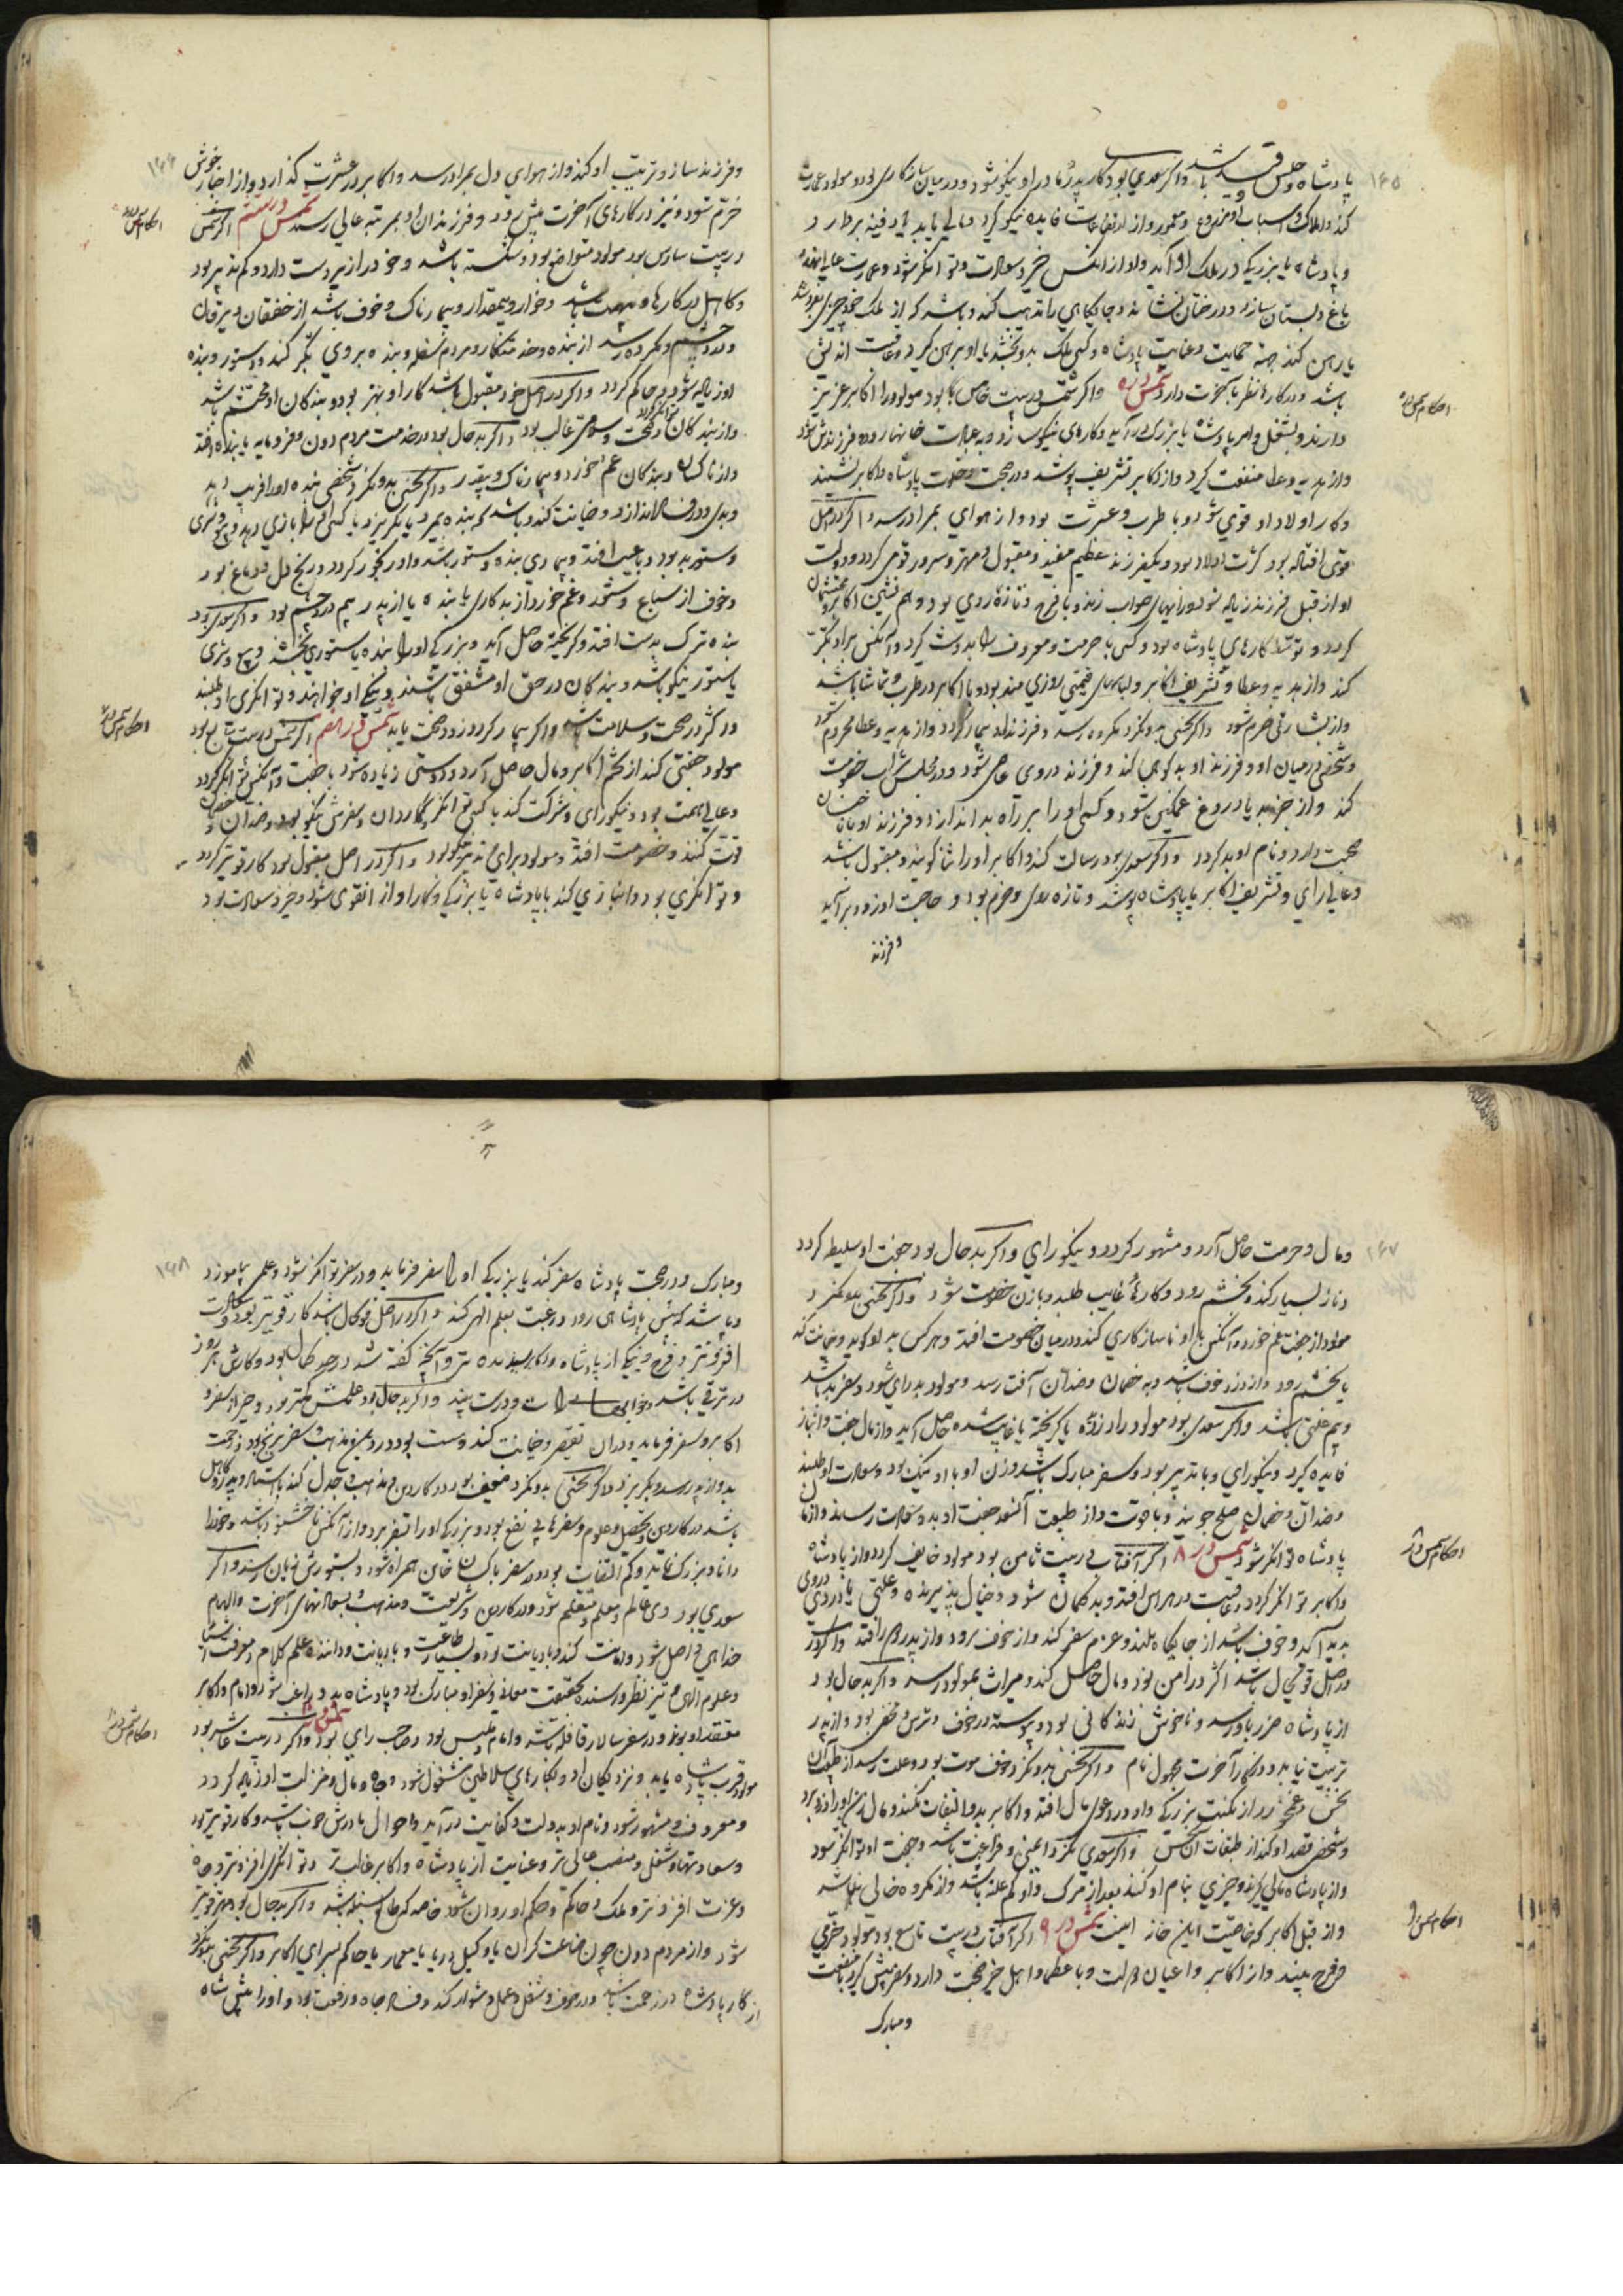 ۱۶۵
پادشاه و حبس و قید باشد و اگر سعدی بود کار پدر و مادر او نیکو شود و در میان سازکاری بود و مولود عمارت
کند و املاک و اسباب او مزروع و معمور و از ارتفاعات فایده نیکو گیرد و مالی یابد یا دفینه بردارد
و پادشاه یا بزرگی در ملک او آید و او را از آنکس خیر و سعادت و توانگر شود و عمارت عالی نهد
باغ و بستان سازد و درختان نشاند و جایگاهی را تذهیب کند و باشد که از ملک خود چیزی بفروشد
یا رهن کند جهة حمایت و عنایت پادشاه و کسی ملک بدو بخشد یا او برهن گیرد و عاقبت اندیش
باشد و در کارها نظر بآخرت دارد شمس در ه و اگر شمس در بیت خامس بود مولود را اکابر عزیز
دارند و بشغل و امر پادشاه یا بزرگ برآید و کارهای نیکو سازد و به عمارت خانها رود و فرزندش شود
و از هدیه و عطا منفعت گیرد و از اکابر تشریف پوشد و در صحبت و خلوت پادشاه و اکابر نشیند
و کار اولاد او قوی شود و با طرب و عشرت بود و از هوای بمراد رسد و اگر در اصل
قوی افتاده بود کثرت اولاد بود و یکفرزند عظیم مفید و مقبول و مهتر و سرور قوم گردد و دولت
او از قبل فرزند زیاده شود و رایهای صواب زند و با فرح و تازه روی بود و هم نشین اکابر و محتشمان
گردد و توسط کارهای پادشاه بود و کسی با حرمت و معروف را بدوست گیرد و آنکس بر او تکبر
کند و از هدیه و عطا و تشریف اکابر و لباسهای قیمتی روزی مند بود و با اکابر در طرب و تماشا باشد
و از بشارتی خرم شود و اگر نحسی بدو نگرد مکروه رسد و فرزند او بیمار گردد و از هدیه و عطا محروم شود
و شخصی در میان او و فرزند او بدگویی کند و فرزند در وی عاصی شود و در مجلس شراب خصومت
کند و از خبر بد یا دروغ غمگین شود و کسی او را بر راه بد اندازد و فرزند او با خسان
صحبت دارد و نام او بد گردد و اگر سعدی بود رسالت کند و اکابر او را ثنا گویند و مقبول باشد
و عالی رای و تشریف اکابر یا پادشاه پوشد و تازه روی و خرم بود و حاجت او زود برآید
و فرزند
احکام شمس در ه
۱۶۶
و فرزند ساز و تربیت او کند و از هوای دل بمراد رسد و اکابر در عشرت گذارد و از اخبار خوش
خرم شود و نیز در کارهای آخرت پیش رود و فرزندان او بمرتبه عالی رسد شمس در ششم اگر شمس
در بیت سادس بود مولود متواضع بود و شکسته باشد و خود را زیردست دارد و کم تدبیر بود
و کاهل در کارها و بی همت باشد و خوار و بیمقدار و بیمارناک و خوف باشد از خفقان و یرقان
و درد چشم و مکروه رسد از بنده و خدمتکار و مردم سفله و بنده بر وی تکبر کند و ستور و بنده
او زیاده شود و حاکم گردد و اگر در اصل خود مقبول باشد کار او بهتر بود و بندگان او محتشم باشد
و از بندگان توانگر گردد و صحت و سلامتی غالب بود و اگر بدحال بود در خدمت مردم دون و فرومایه یا بنده افتد
و از ناکسان و بندگان غم خورد و بیمارناک و بیقدر و اگر نحسی بدو نگرد شخصی بنده او را فریب دهد
و بدی و در فساد اندازد و خیانت کند و باشد که بنده بمیرد یا بگریزد یا کسی او را بازی دهد و بیع و شری
و ستور بد بود و با عیب افتد و بیماری بنده و ستور باشد و او رنجور گردد و رنج دل و دماغ بود
و خوف از سباع و ستور و غم خورد از بدکاری یا بنده یا از پدر بیم درد چشم بود و اگر سعدی بود
بنده ترک بدست افتد و گریخته حاصل آید و بزرگی او را بنده یا ستوری بخشد و بیع و شری
یا ستور نیکو باشد و بندگان در حق او مشفق باشند و نیکی او خواهند و توانگری او طلبند
و اکثر در صحت و سلامت باشد و اگر بیمار گردد زود صحت یابد شمس در هفتم اگر شمس در بیت سابع بود
مولود جفتی کند از تخم اکابر و مال حاصل آرد و دوستی زیاده شود با جفت و آنکس توانگر گردد
و عالی همت بود و نیکورای و شرکت کند با کسی توانگر و کاردان و سفرش نیکو بود و ضدان و خصمان
قوت کنند و خصومت افتد و مولود برای و تدبیر نیکو بود و اگر در اصل مقبول بود کار قویتر گردد
و توانگری بود و انبازی کند با پادشاه یا بزرگی و کار او از آن قوی شود و خیر و سعادت بود
احکام شمس در ۶
احکام شمس در ۷
۱۶۷
و مال و حرمت حاصل آرد و مشهور گردد و نیکورای و اگر بدحال بود جفت او سلیطه گردد
و ناز بسیار کند و بخشم رود و کارهاء غایب طلبد و با زن خصومت شود و اگر نحسی بدو نگرد
مولود از جفت غم خورد و آنکس با او ناسازکاری کند و در میان خصومت افتد و هر کس بد او گوید و خیانت کند
یا بخشم رود و از دزد خوف باشد و به خصمان و ضدان آفت رسد و مولود بد رای شود و سفر بد باشد
و بیم علتی باشد و اگر سعدی بود مولود را دزدیده یا گریخته یا غایب شده حاصل آید و از مال جفت و انباز
فایده گیرد و نیکورای و با تدبیر بود و سفر مبارک باشد و زن او با او نیک بود و سعادت او طلبند
و ضدان و خصمان صلح جویند و با قوت و از طبیعت آنسو جفت او بدو سعادت رساند و از مال
پادشاه توانگر شود شمس در ۸ اگر آفتاب در بیت ثامن بود مولود خایف گردد و از پادشاه
و اکابر توانگر گردد و عاقبت در هراس افتد و بدگمان شود و خیال پذیرنده و علتی یا دردی در وی
پدید آید و خوف باشد از جایگاه بلند و عزم سفر کند و از خوف برود و از پدر دور افتد و اگر در
در اصل قوی حال باشد اکثر در امن بود و مال حاصل کند و میراث بمولود رسد و اگر بدحال بود
از پادشاه ضرر باو رسد و ناخوش زندگانی بود و پیوسته در خوف و ترس و مخفی بود و از پدر
تربیت نیابد و در کار آخرت مجهول نام و اگر نحسی بدو نگرد خوف موت بود و علت رسد از طبقات آن
نحس و غم خورد از نکبت بزرگی و او در دعوی مال افتد و اکابر بدو التفات نکنند و مال زن او را دزد برد
و شخصی قصد او کند از طبقات آن نحس و اگر سعدی نگرد ایمنی و فراغت باشد و جفت او توانگر شود
و از پادشاه مالی گیرد و چیزی بنام او کنند بعد از مرگ و او کم علت باشد و از مکروه خالی نباشد
و از قبل اکابر که خاصیت این خانه اینست شمس در ۹ اگر آفتاب در بیت تاسع بود مولود خرمی
و فرح بیند و از اکابر و اعیان دولت و با عظما و اهل خیر صحبت دارد و سفر پیش گیرد با منفعت
و مبارک
احکام شمس در ۸
احکام شمس در ۹
۱۶۸
و مبارک و در صحبت پادشاه سفر کند یا بزرگی او را سفر فرماید و در سفر توانگر شود و علمی بیاموزد
و باشد که پیش پادشاهی رود و رغبت بعلم الهی کند و اگر در اصل قوی حال باشد کار قویتر بود و سعادت
افزونتر و فرح و نیکی از پادشاه و اکابر بیند و آنچه گفته شد در حد کمال بود و کارش هر روز
در ترقی باشد و خوابهاء راست و درست بیند و اگر بدحال بود علمش کمتر بود و خیر از سفر و
اکابر و سفر فرماید و در آن تقصیر و خیانت کند و سست بود در دین و مذهب و سفر برنج بود و زحمت
بد و از پدر رسد و بگریزد و اگر نحسی بدو نگرد ضعیف بود در کار دین و مذهب و جدل کند با استاد و پدر و کاهل
باشد در کار دین و تحصیل علوم و سفرها بی نفع بود و بزرگی او را بسفر برد و از آنکس ناخشنود باشد و خود را
دانا و بزرگ نماید و کم التفات بود و در سفر با کسان خائن همراه شود و بستورش زیان رسد و اگر
سعدی بود وی عالم و معلم و متعلم شود و در کار دین و شریعت و مذهب و بسعادتهای آخرت و الهام
خدایی واصل شود و امامت کند و با دیانت بود و بسیار طاعت و با دیانت و داننده علم کلام و معرفت اشیا
و علوم الهی و تیز نظر و رسنده بحقیقت معانی و سفر او مبارک بود و پادشاه بدو راغب شود و امام و اکابر
معتقد او بوند و در سفر سالار قافله باشد و امام مجلس بود و صاحب رای بود شمس در ۱۰ و اگر در بیت عاشر بود
مولود قرب پادشاه یابد و نزدیکان او و بکارهای سلاطین مشغول شود و جاه و مال و منزلت او زیاده گردد
و معروف و مشهور شود و نام او بدولت و کفایت درآید و احوال مادرش خوب باشد و کار قویتر بود
و سعادتها و شغل و منصب عالی تر و عنایت از پادشاه و اکابر غالب تر و توانگری افزونتر و جاه
و عزت افزونتر و ملک و حاکم و حکم او روان شود خاصه که طالع سنبله باشد و اگر بدحال بود مهتر و قویتر
شود و از مردم دون چون صناعت گران یا وکیل دریا یا معمار یا حاکم سرای اکابر و اگر نحسی بدو نگرد
از کار پادشاه در زحمت باشد و در خوف و شغل و عمل دشوار کند و فساد جاه و رفعت بود و او را پیش شاه
احکام شمس در ۱۰